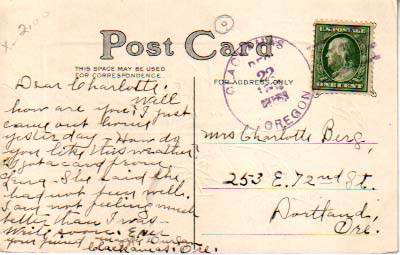 X-2100
Post Card
THIS SPACE MAY BE USED
FOR CORRESPONDENCE.
FOR ADDRESS ONLY
CLACKAMAS
DEC
22
OREGON
ONE CENT
Dear Charlotte:
Well
how are you? I just
came out home
yesterday - How do
you like this weather
I got a card from
She said she
had not been well.
I am not feeling much
better than I was -
Write soon. Ever
your friend
Clackamas, Ore.
Mrs Charlotte Berg,
253 E. 72nd St.
Portland,
Ore.